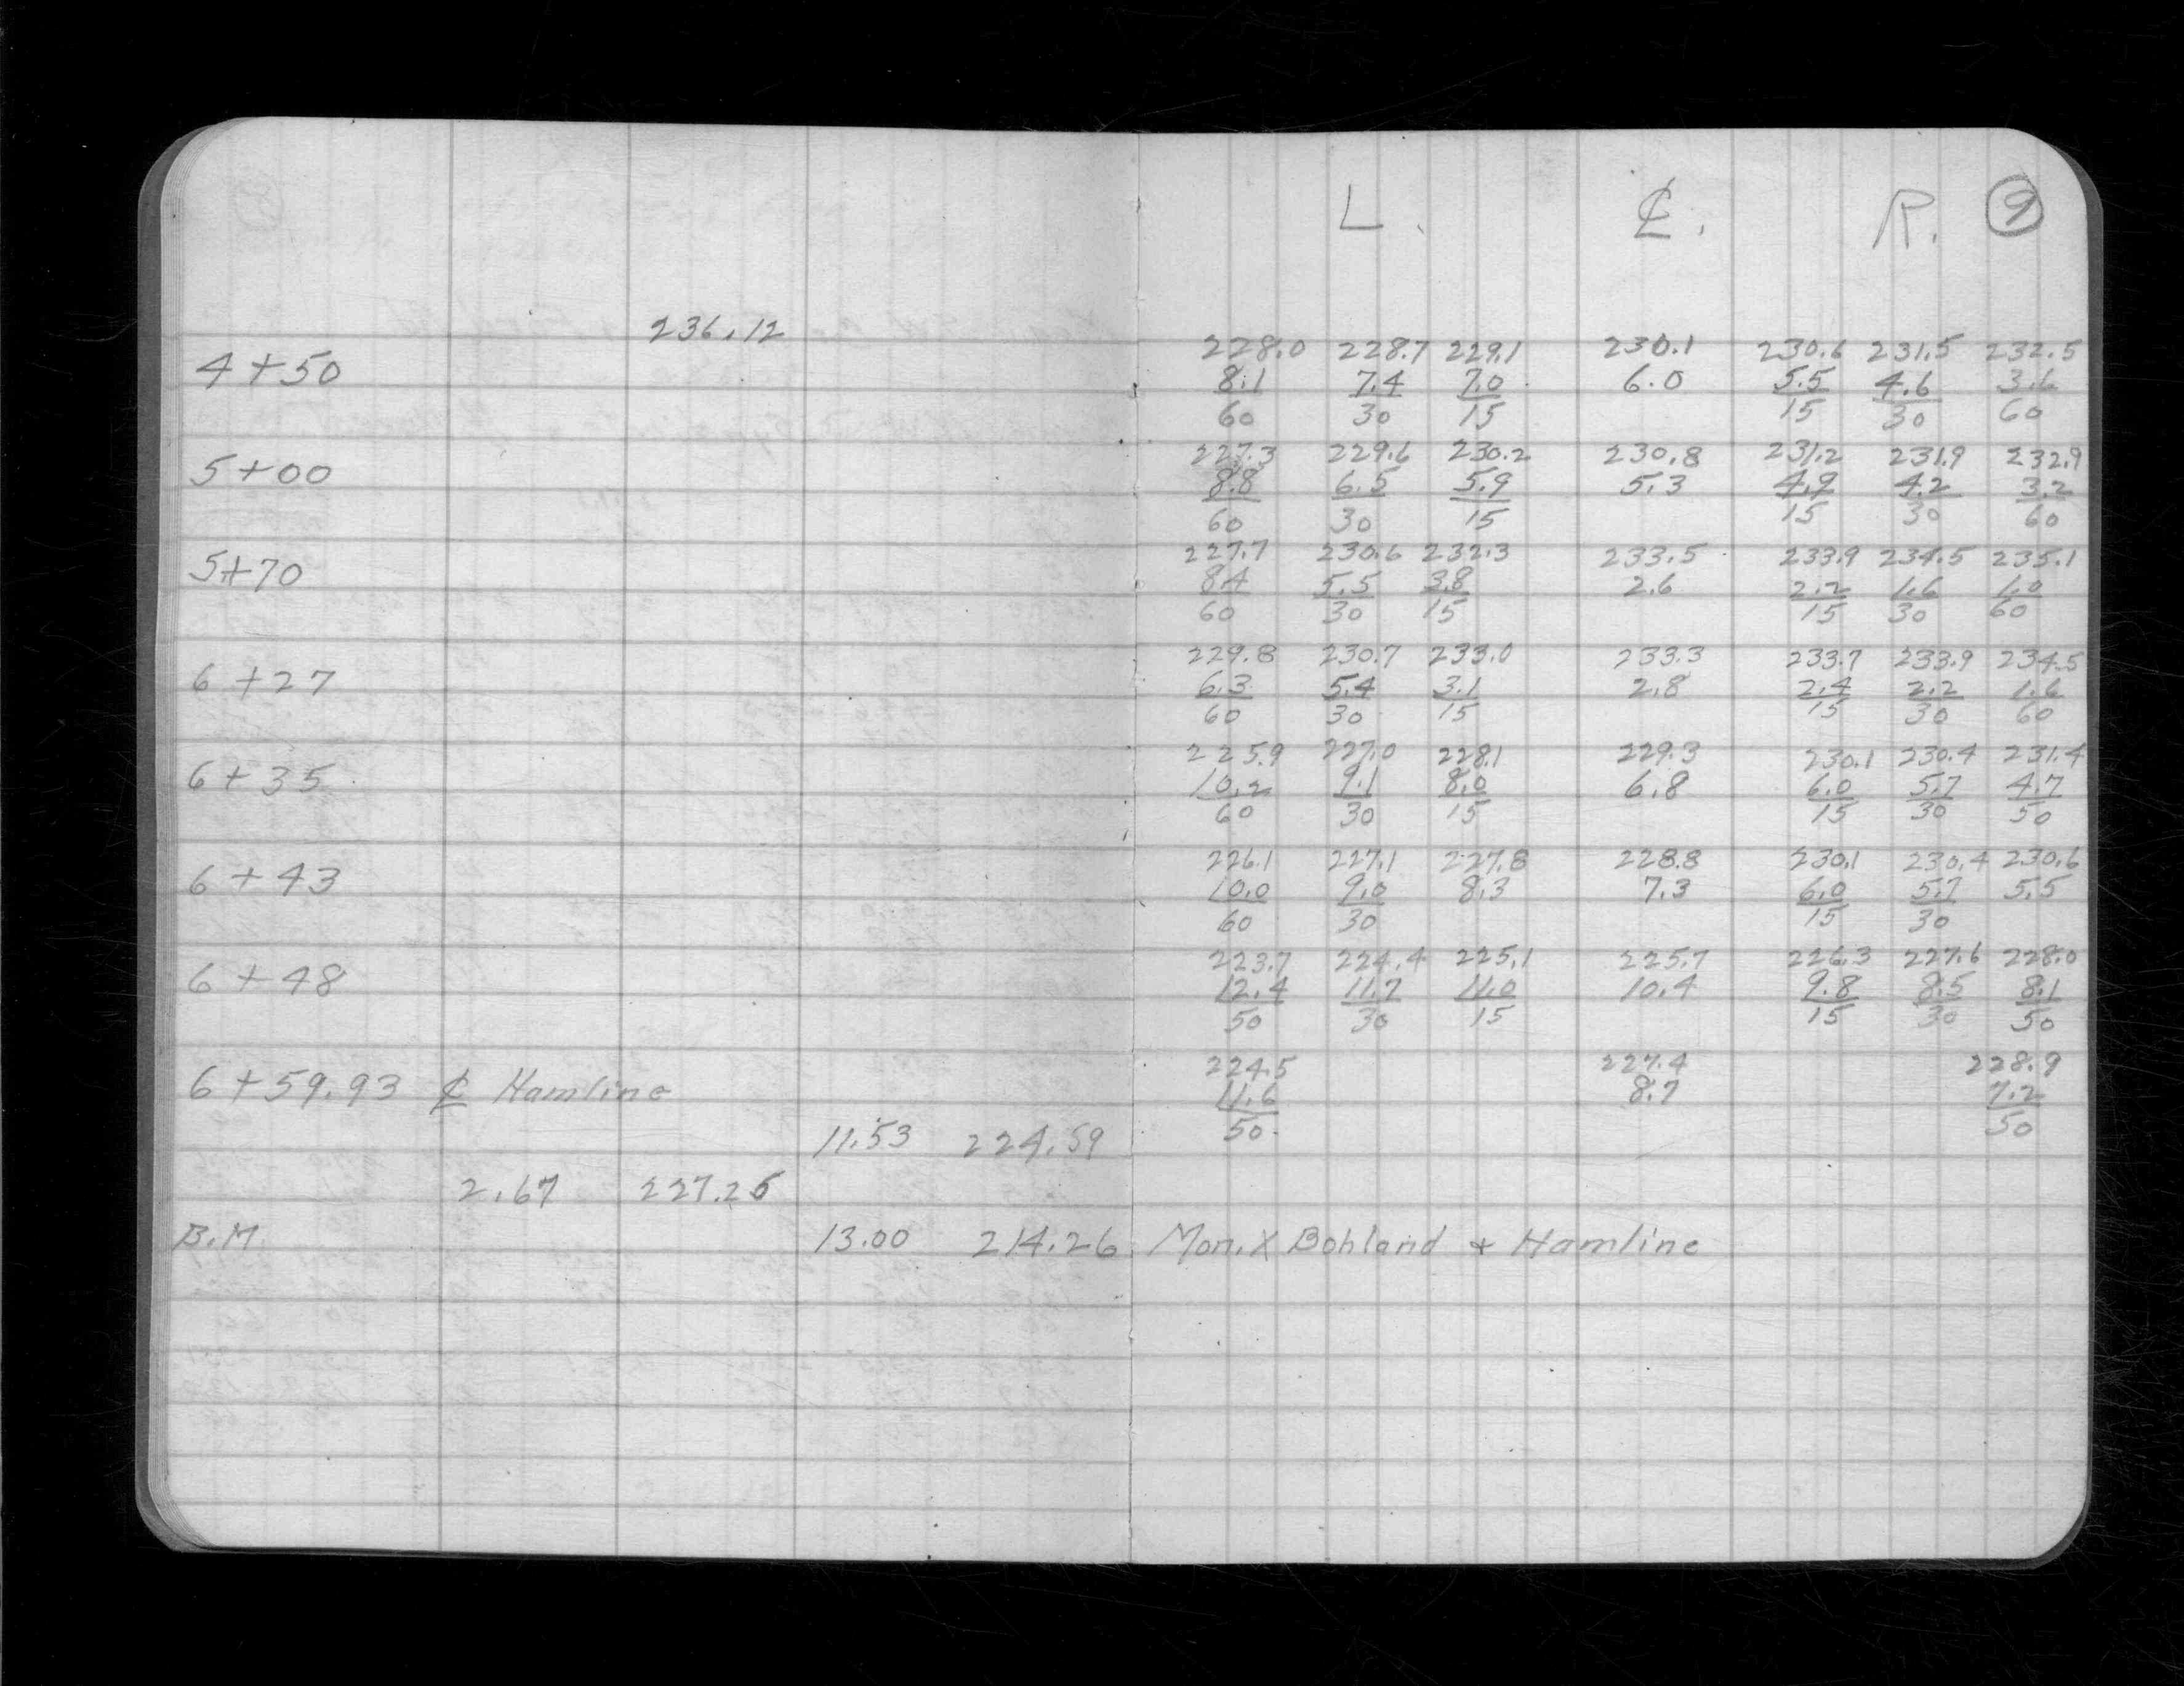 L. ⅊. R. 9
236.12
228.0 228.7 229.1 230.1 230.6 231.5 232.5
4+50 8.1 7.4 7.0 6.0 5.5 4.6 3.6
60 30 15 15 30 60
227.3 229.6 230.2 230.8 231.2 231.9 232.9
5+00 8.8 6.5 5.9 5.3 4.9 4.2 3.2
60 30 15 15 30 60
227.7 230.6 232.3 233.5 233.9 234.5 235.1
5+70 8.4 5.5 3.8 2.6 2.2 1.6 1.0
60 30 15 15 30 60
229.8 230.7 233.0 233.3 233.7 233.9 234.5
6+27 6.3 5.4 3.1 2.8 2.4 2.2 1.6
60 30 15 15 30 60
225.9 227.0 228.1 229.3 230.1 230.4 231.4
6+35 10.2 9.1 8.0 6.8 6.0 5.7 4.7
60 30 15 15 30 50
226.1 227.1 227.8 228.8 230.1 230.4 230.6
6+43 10.0 9.0 8.3 7.3 6.0 5.7 5.5
60 30 15 30
223.7 224.4 225.1 225.7 226.3 227.6 228.0
6+48 12.4 11.7 11.0 10.4 9.8 8.5 8.1
50 30 15 15 30 50
224.5 227.4 228.9
6+59.93 ⅊ Hamline 11.6 8.7 7.2
11.53 224.59 50 50
2.67 227.26
B.M. 13.00 214.26 Mon. X Bohland + Hamline